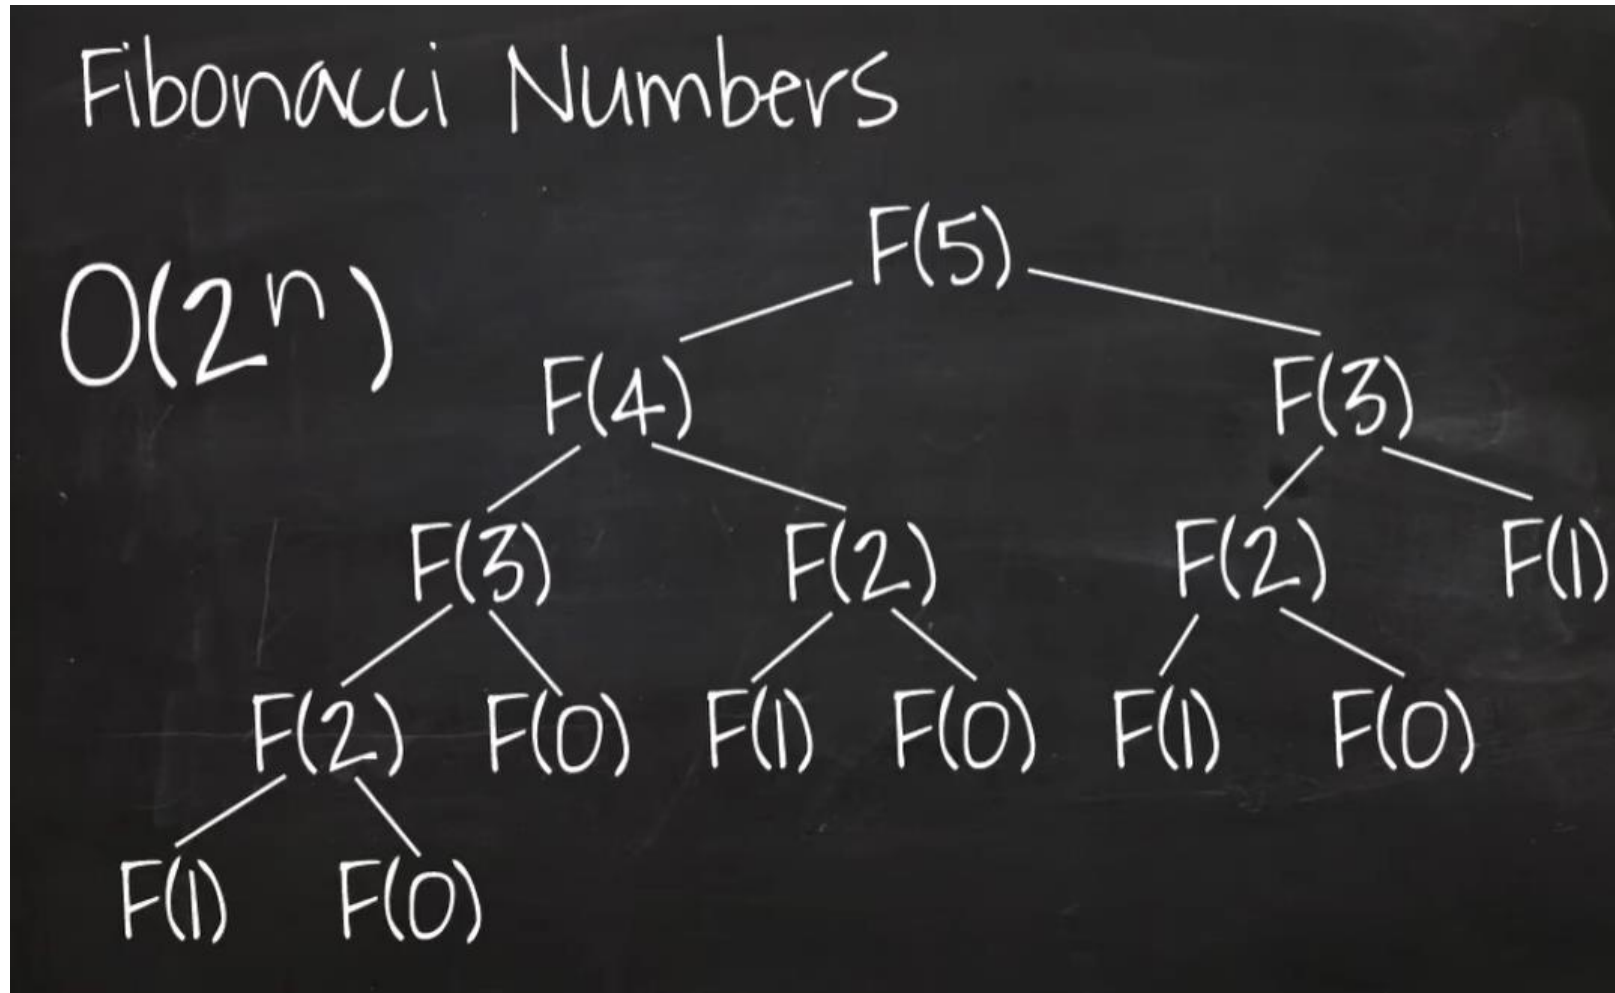 Fibonacci Numbers
F(5)
O(2ⁿ)
F(4) F(3)
F(3) F(2) F(2) F(1)
F(2) F(0) F(1) F(0) F(1) F(0)
F(1) F(0)